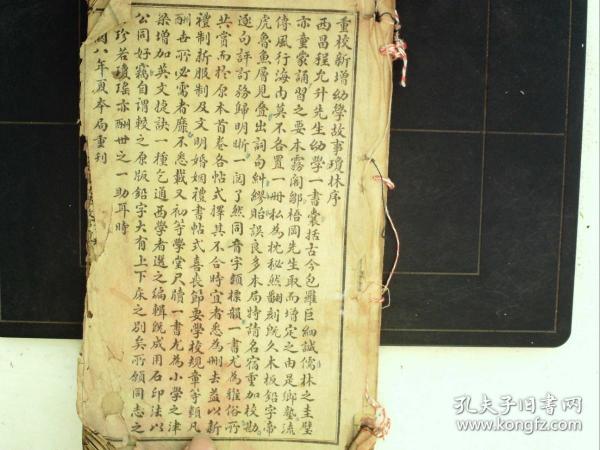 重校新增幼學故事瓊林序
西昌程允升先生幼學一書囊括古今包羅巨細誠儒林之圭璧
亦童蒙誦習之要本霧閣鄒梧岡先生取而增定之由是鄉塾流
傳風行海內莫不各置一冊私為枕秘然翻刻既久木板鉛字帝
虎魯魚層見叠出詞句糾繆貽誤良多本局特請名宿重加校勘
逐句評訂務歸明晰一閱了然同音字類標韻一書尤為雅俗所
共賞而於原本首卷各帖式擇其不合時宜者悉為刪去益以新
禮制新服制及文明婚姻禮書帖式喜喪節要學校規章等類凡
酬世所必需者靡不悉載又初等學堂尺牘一書尤為小學之津
梁增加英文捷訣一種乞通西學者選之編輯既成用石印法以
公同好竊自謂較之原版鉛字大有上下床之別矣所願同志之
珍若瓊瑤亦酬世之一助耳時
國八年夏本局重刊
孔夫子旧书网
www.kongfz.com